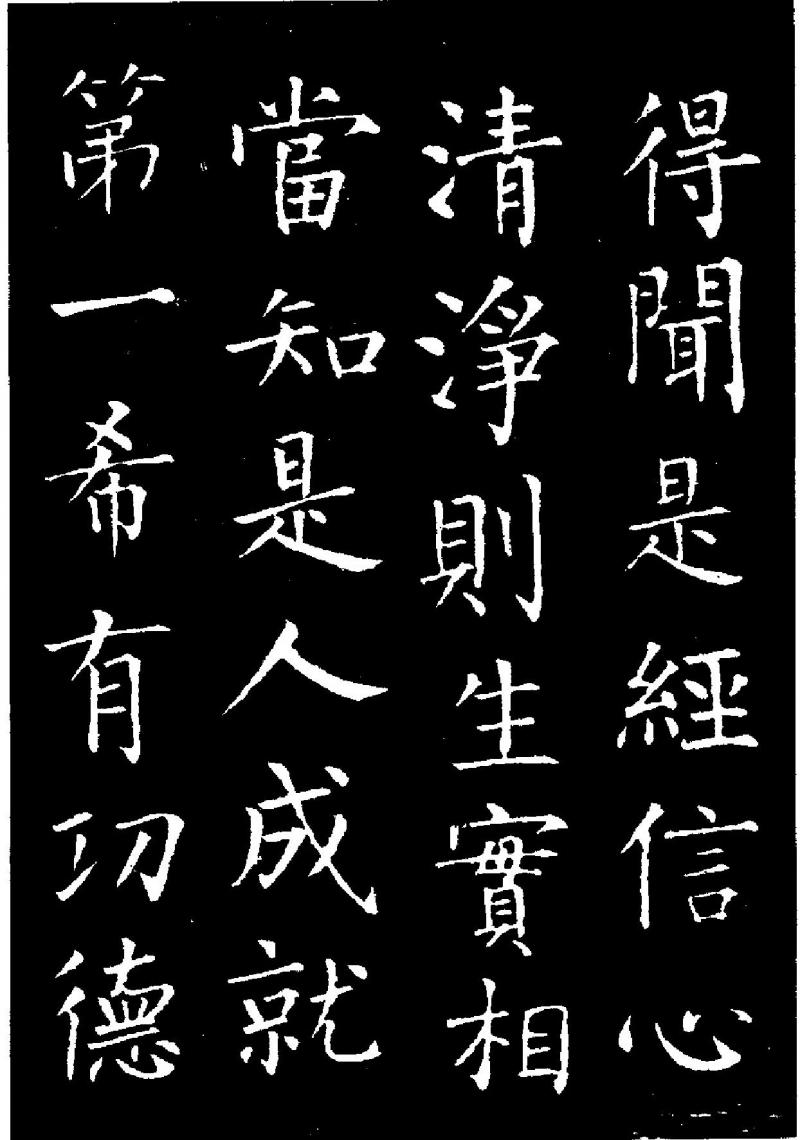 得聞是經信心
清淨則生實相
當知是人成就
第一希有功德